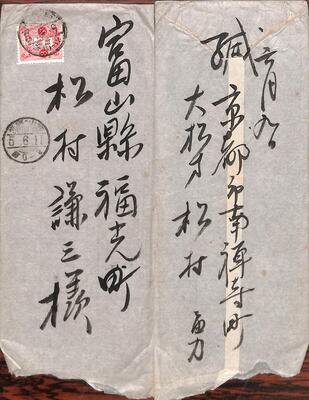 富山縣福光町
松村謙三様
5.6.11
六月九日
緘
京都市南禅寺町
松村